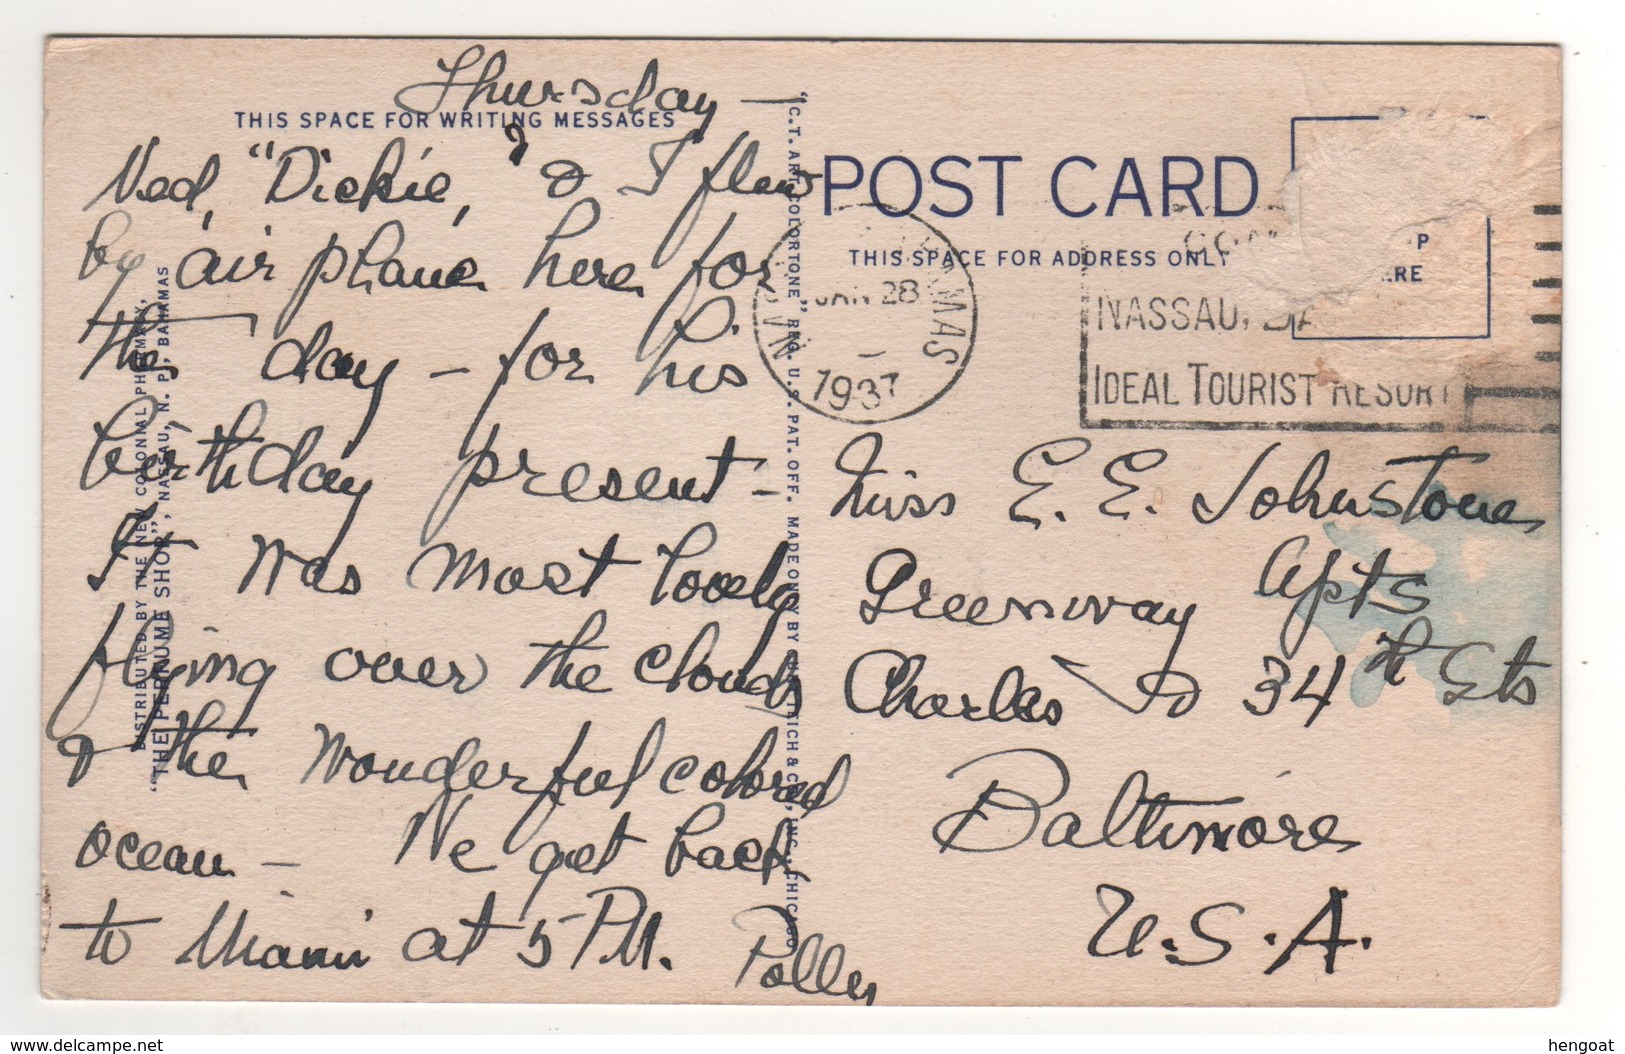 Thursday -
THIS SPACE FOR WRITING MESSAGES
Ned, "Dickie," & I flew
by air plane here for
the day - for his
birthday present -
It was most lovely
flying over the clouds
& the wonderful colored
ocean - We get back
to Miami at 5 P.M.
Polly
DISTRIBUTED BY THE NEW COLONIAL PHARMACY,
"THE PERFUME SHOP", NASSAU, N. P., BAHAMAS
"C.T. ART-COLORTONE" REG. U.S. PAT. OFF. MADE ONLY BY CURT TEICH & CO., INC., CHICAGO
POST CARD
THIS SPACE FOR ADDRESS ONLY
P
ERE
JAN 28
1937
NASSAU, BA
IDEAL TOURIST RESORT
Miss E. E. Johnstone
Greenway Apts
Charles & 34th Sts
Baltimore
U.S.A.
www.delcampe.net
hengoat